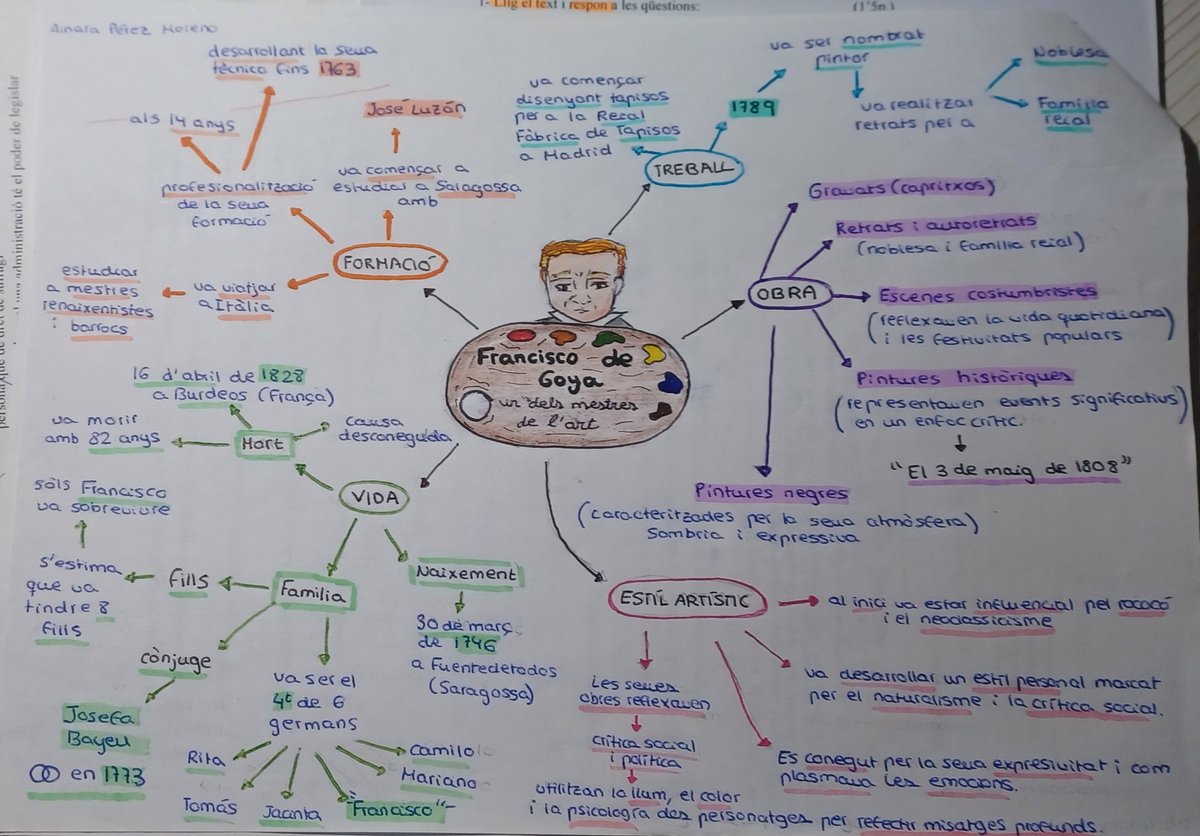 1- Llig el text i respon a les qüestions:
(1'5n.)
Ainara Pérez Moreno
desarrollant la seua
tècnica fins 1763
als 14 anys
profesionalització
de la seua
formació
José Luzón
va començar a
estudiar a Saragossa
amb
FORMACIÓ
va viatjar
a Itàlia
estudiar
a mestres
renaixentistes
i barrocs
va començar
disenyant tapisos
per a la Real
Fàbrica de Tapisos
a Madrid
TREBALL
1789
va ser nombrat
pintor
va realitzar
retrats per a
Noblesa
Família
reial
Francisco de
Goya
un dels mestres
de l'art
OBRA
Gravats (capritxos)
Retrats i autoretrats
(noblesa i família reial)
Escenes costumbristes
(reflexaven la vida quotidiana)
i les festivitats populars
Pintures històriques
(representaven events significatius)
en un enfoc crític.
"El 3 de maig de 1808"
Pintures negres
(caracteritzades per la seua atmòsfera)
sombria i expressiva
VIDA
Mort
16 d'abril de 1828
a Burdeos (França)
va morir
amb 82 anys
causa
desconeguda
Família
fills
s'estima
que va
tindre 8
fills
sòls Francisco
va sobreviure
cònjuge
Josefa
Bayeu
en 1773
va ser el
4º de 6
germans
Rita
Tomás
Jacinta
"Francisco"
Mariano
Camilo
Naixement
30 de març
de 1746
a Fuentedetodos
(Saragossa)
ESTIL ARTÍSTIC
al inici va estar influencial pel rococó
i el neoclassicisme
va desarrollar un estil personal marcat
per el naturalisme i la crítica social.
Es conegut per la seua expresivitat i com
plasmava les emocions.
Les seues
obres reflexaven
crítica social
i política
utilitzan la llum, el color
i la psicología dos personatges per refectir misatges profunds.